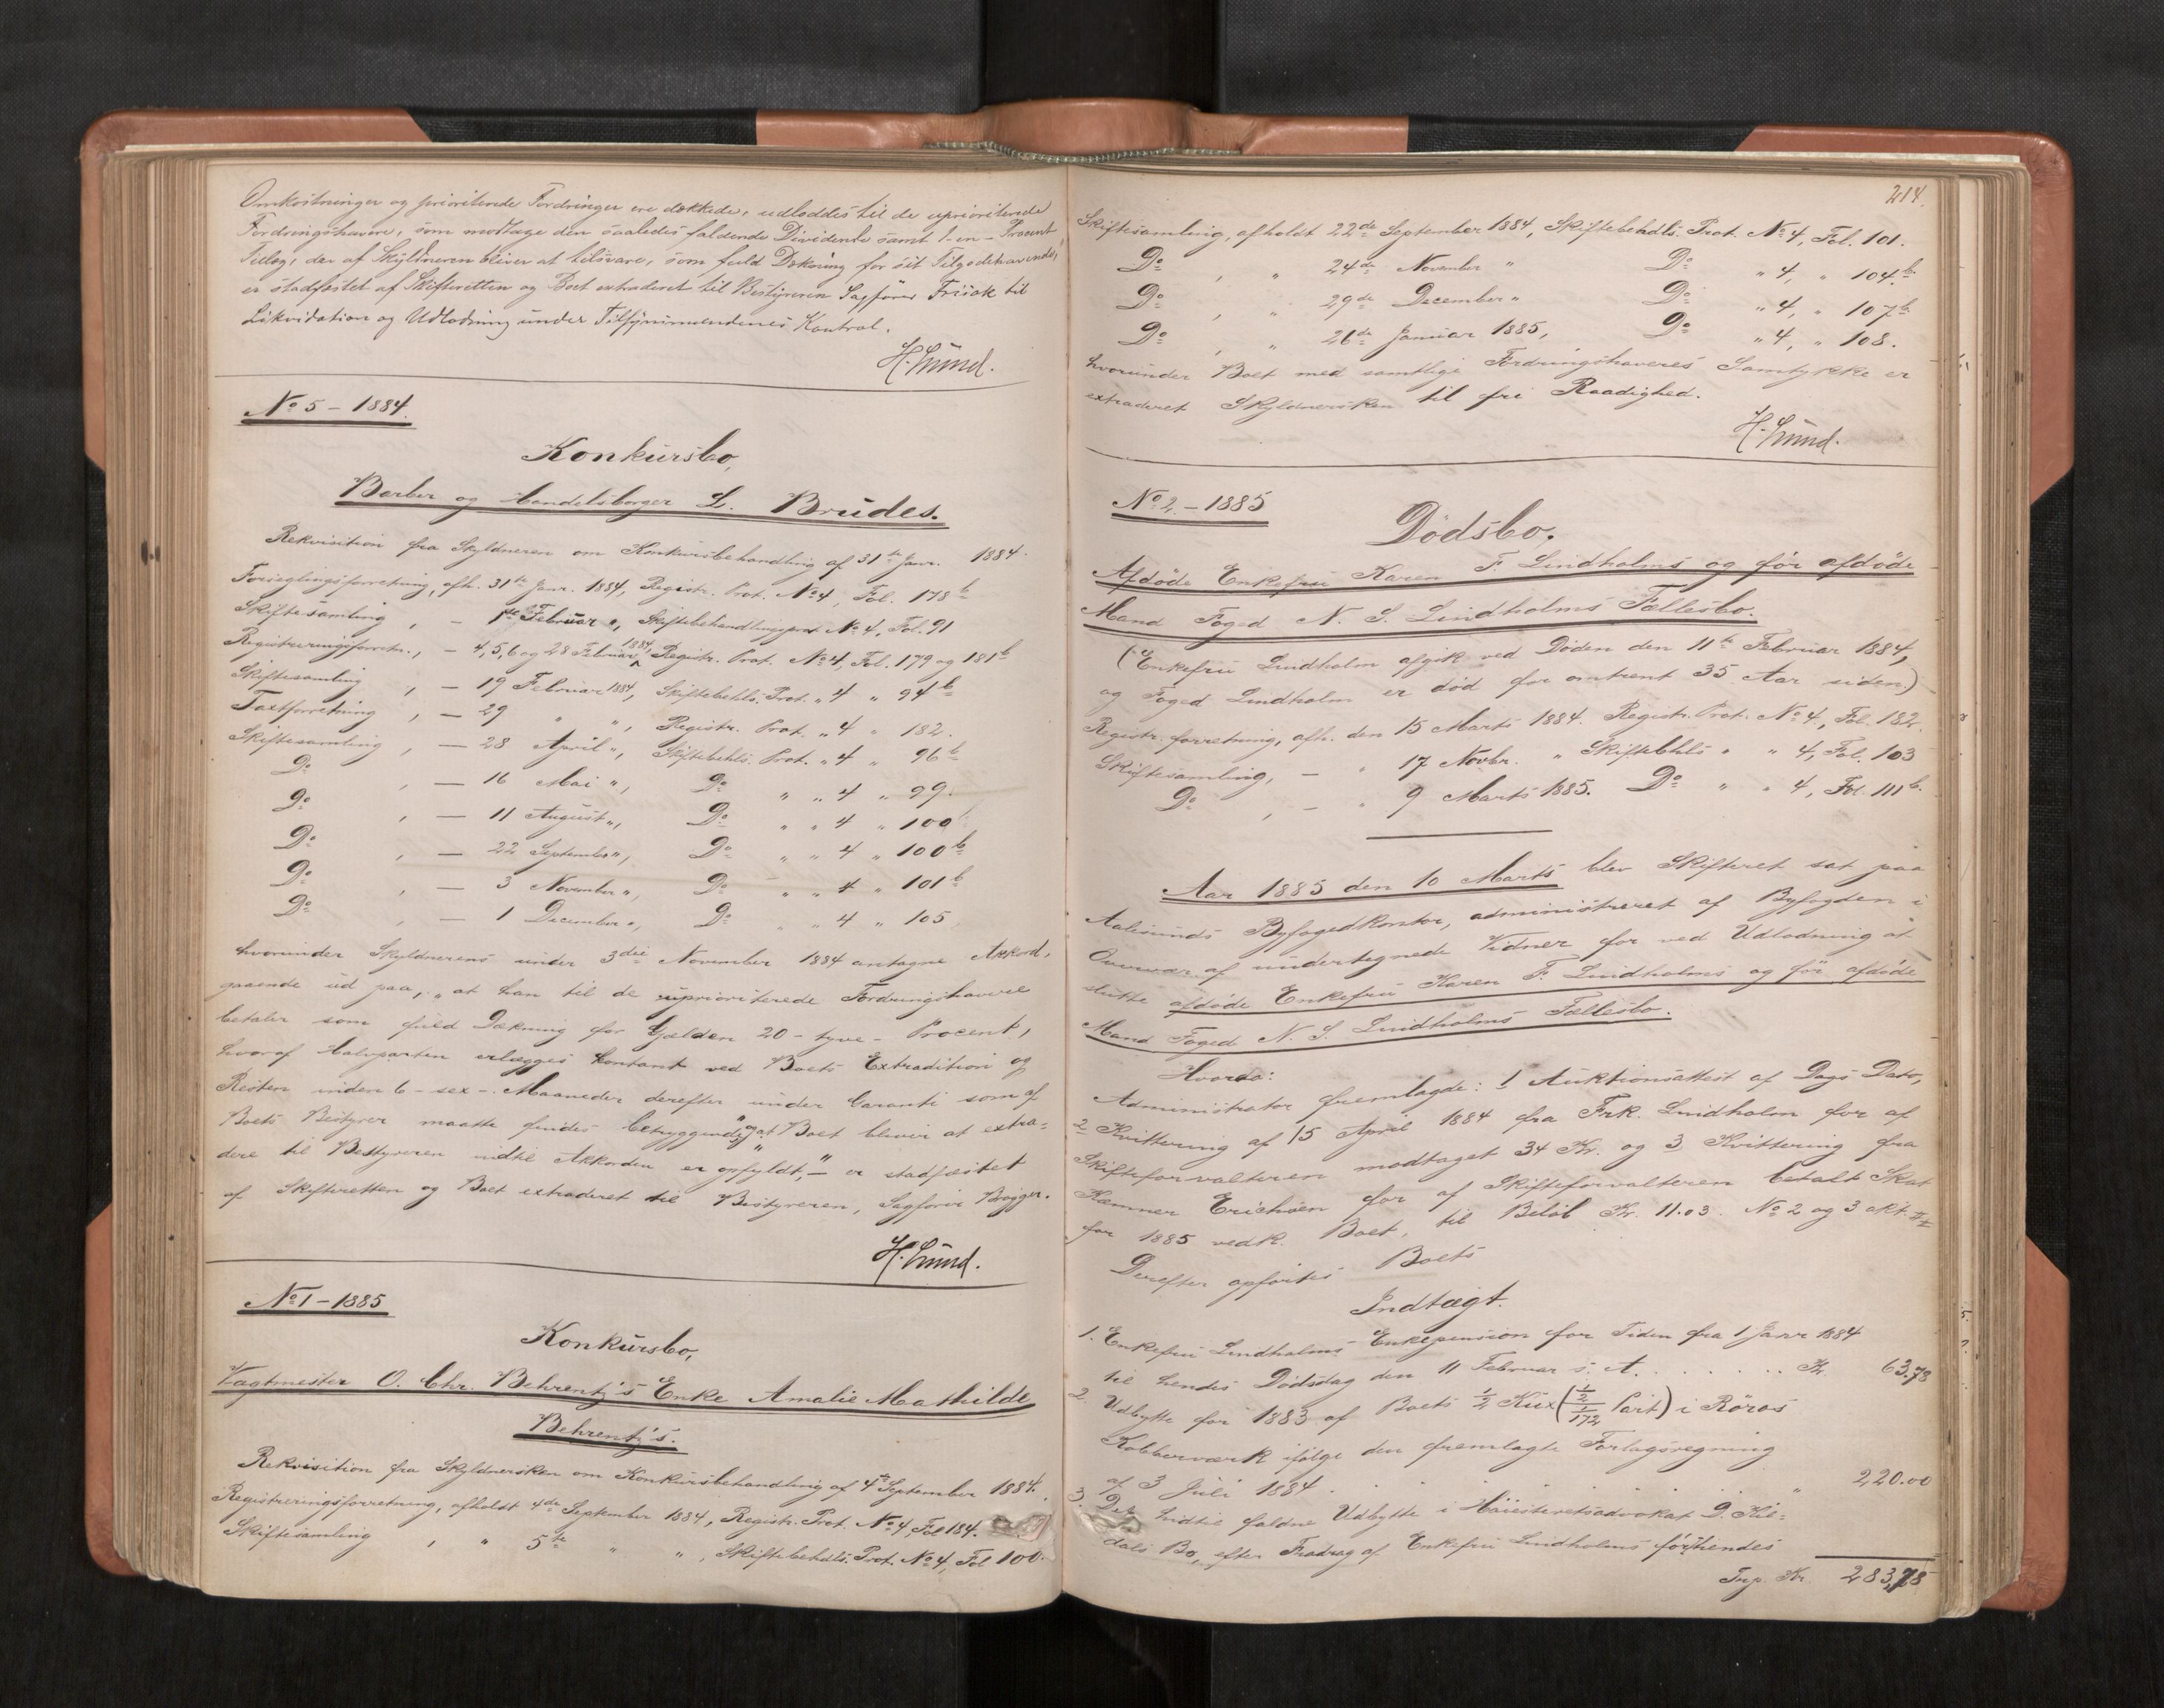 Omkostninger og prioriterede Fordringer ere dækkede, udloddes til de uprioriterede
Fordringshavere, som modtage den saaledes faldende Dividende samt 1-en-Procent
Tillæg, der af Skyldneren bliver at tilsvare, som fuld Dækning for sit Tilgodehavende,
er stadfæstet af Skifteretten og Boet extraderet til Bestyreren Sagfører Frisak til
Likvidation og Udlodning under Tilsynsmændenes Kontrol.
H. Lund.
No 5 – 1884.
Konkursbo,
Barber og Handelsborger L. Brudes.
Rekvisition fra Skyldneren om Konkursbehandling af 31te Janr. 1884.
Forseglingsforretning, afh. 31te Janr. 1884, Registr. Prot. No 4, Fol. 178b
Skiftesamling , – 1ste Februar „, Skiftebehandlingsprot No 4, Fol. 91
Registreringsforretn., – 4, 5, 6 og 28 Februar 1884, Registr. Prot. No 4, Fol. 179 og 181b
Skiftesamling , – 19 Februar 1884, Skiftebehls. Prot. „ 4 „ 94b
Taxtforretning , – 29 „ „, Registr. Prot. „ 4 „ 182.
Skiftesamling , – 28 April „, Skiftebehls. Prot. „ 4 „ 96b
Do , – 16 Mai „, Do „ „ 4 „ 99.
Do , – 11 August „, Do „ „ 4 „ 100
Do , – 22 September „, Do „ „ 4 „ 100b
Do , – 3 November „, Do „ „ 4 „ 101b
Do , – 1 December „, Do „ „ 4 „ 105.
hvorunder Skyldnerens under 3die November 1884 antagne Akkord,
gaaende ud paa, „at han til de uprioriterede Fordringshavere
betaler som fuld Dækning for Gjælden 20 – tyve – Procent,
hvoraf Halvparten erlægges kontant ved Boets Extradition og
Resten inden 6 – sex – Maaneder derefter under Garanti som af
Boets Bestyrer maatte findes betryggende", „at Boet bliver at extra=
dere til Bestyreren indtil Akkorden er opfyldt," – er stadfæstet
af Skifteretten og Boet extraderet til Bestyreren, Sagfører Brøgger.
H. Lund.
No 1 – 1885
Konkursbo,
Vagtmester O. Chr. Behrentz's Enke Amalie Mathilde
Behrentz's.
Rekvisition fra Skyldnersken om Konkursbehandling af 4de September 1884.
Registreringsforretning, afholdt 4de September 1884, Registr. Prot. No 4, Fol 184.
Skiftesamling , „ 5te „ „, Skiftebehdls. Prot. No 4, Fol 100.
214.
Skiftesamling, afholdt 22de September 1884, Skiftebehdls. Prot. No 4, Fol. 101.
Do , „ 24de November „ Do „ 4, „ 104b.
Do , „ 29de December „ Do „ 4, „ 107b
Do , „ 26de Januar 1885, Do „ 4, „ 108.
hvorunder Boet med samtlige Fordringshaveres Samtykke er
extraderet Skyldnersken til fri Raadighed.
H. Lund.
No 2. – 1885
Dödsbo.
Afdöde Enkefru Karen F. Lindholms og för afdöde
Mand Foged N. S. Lindholms Fællesbo.
(Enkefru Lindholm afgik ved Döden den 11te Februar 1884,
og Foged Lindholm er död for omtrent 35 Aar siden.)
Registr. forretning, afh. den 15 Marts 1884. Registr. Prot. No 4, Fol. 182.
Skiftesamling, – „ 17 Novbr. „ Skiftebhls „ „ 4, Fol. 103
Do , – „ 9 Marts 1885. Do „ „ 4, Fol. 111b.
Aar 1885 den 10 Marts blev Skifteret sat paa
Aalesunds Byfogedkontor, administreret af Byfogden i
Overvær af undertegnede Vidner for ved Udlodning at
slutte afdöde Enkefru Karen F. Lindholms og för afdöde
Mand Foged N. S. Lindholms Fællesbo.
Hvorda:
Administrator fremlagde: 1 Auktionsattest af Dags Dato,
2 Kvittering af 15 April 1884 fra Frk. Lindholm for af
Skifteforvalteren modtaget 34 Kr. og 3 Kvittering fra
Kæmner Erichsen for af Skifteforvalteren betalt Skat
for 1885 vedk. Boet, til Beløb Kr. 11.03. No 2 og 3 akt.
Derefter opførtes Boets
Indtægt.
1. Enkefru Lindholms Enkepension for Tiden fra 1 Janr 1884
til hendes Dödsdag den 11 Februar s. A. . . . . . Kr. 63.78
2. Udbytte for 1883 af Boets 1/2 Kux (1/2/172 Part) i Röros
Kobberværk ifølge den fremlagte Forlagsregning
af 3 Juli 1884 . . . . . . „ 220.00
3. Det hidtil faldne Udbytte i Höiesteretsadvokat D. Kil=
dals Bo, efter Fradrag af Enkefru Lindholms för hendes
Trsp. Kr. 283,78